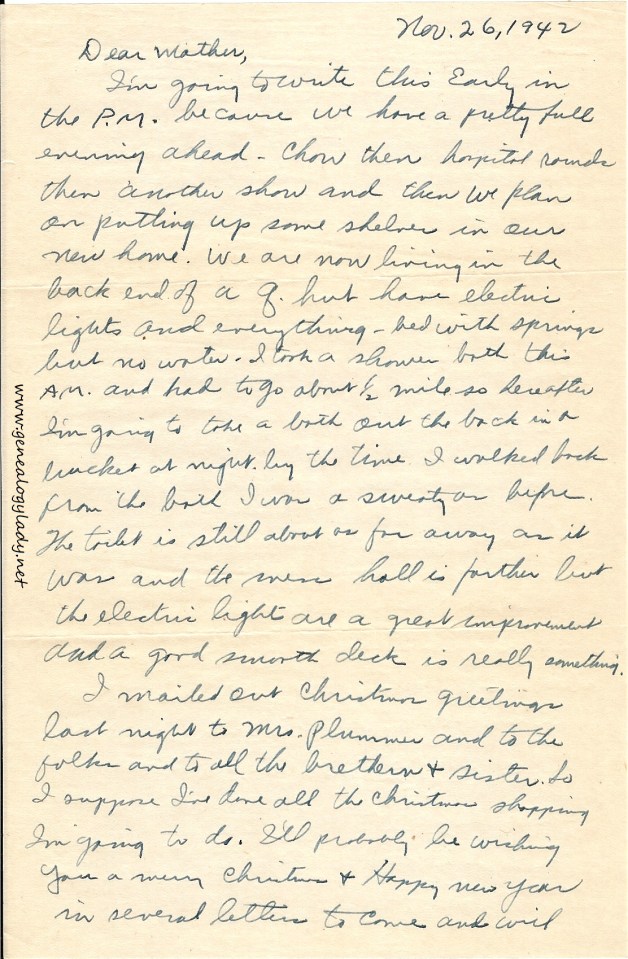 Nov. 26, 1942
Dear Mother,
I'm going to write this Early in
the P.M. because we have a pretty full
evening ahead - Chow then hospital rounds
then another show and then we plan
on putting up some shelves in our
new home. We are now living in the
back end of a Q. hut have electric
lights and everything - bed with springs
but no water. I took a shower bath this
A.M. and had to go about ½ mile so hereafter
I'm going to take a bath out the back in a
bucket at night. by the time I walked back
from the bath I was a sweaty as before.
The toilet is still about as far away as it
was and the mess hall is farther but
the electric light are a great improvement
and a good smooth deck is really something.
I mailed out Christmas greetings
last night to Mrs. Plummer and to the
folks and to all the brethern + sister. So
I suppose I've done all the Christmas shopping
I'm going to do. I'll probably be wishing
you a merry Christmas + Happy new year
in several letters to come and will
www.genealogylady.net